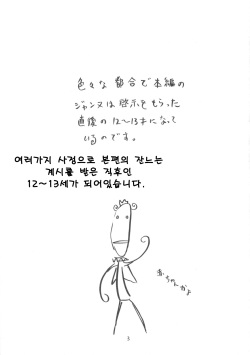 色々な都合で本編の
ジャンヌは啓示をもらった
直後の12~13才になって
いるのです。
여러가지 사정으로 본편의 잔느는
계시를 받은 직후인
12~13세가 되어있습니다.
赤ちゃんかよ
3